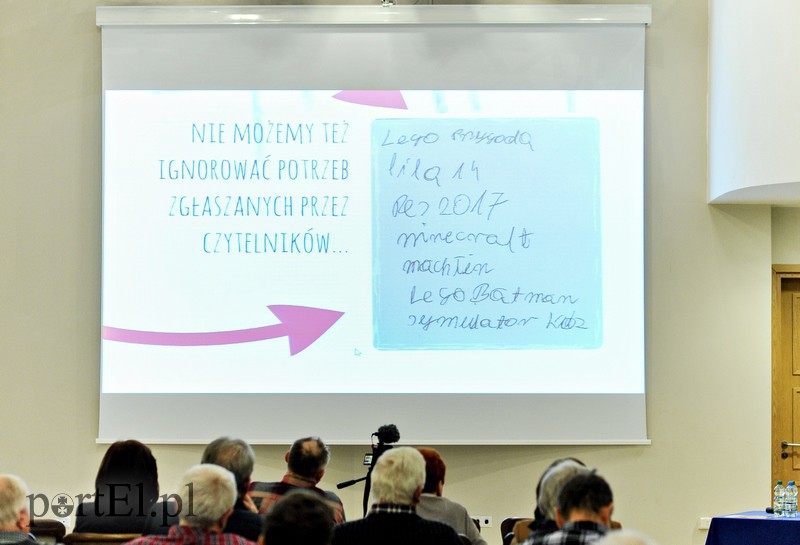 NIE MOŻEMY TEŻ
IGNOROWAĆ POTRZEB
ZGŁASZANYCH PRZEZ
CZYTELNIKÓW...
Lego Przygoda
fifa 14
Pes 2017
minecraft
Lego Batman
symulator
portEl.pl